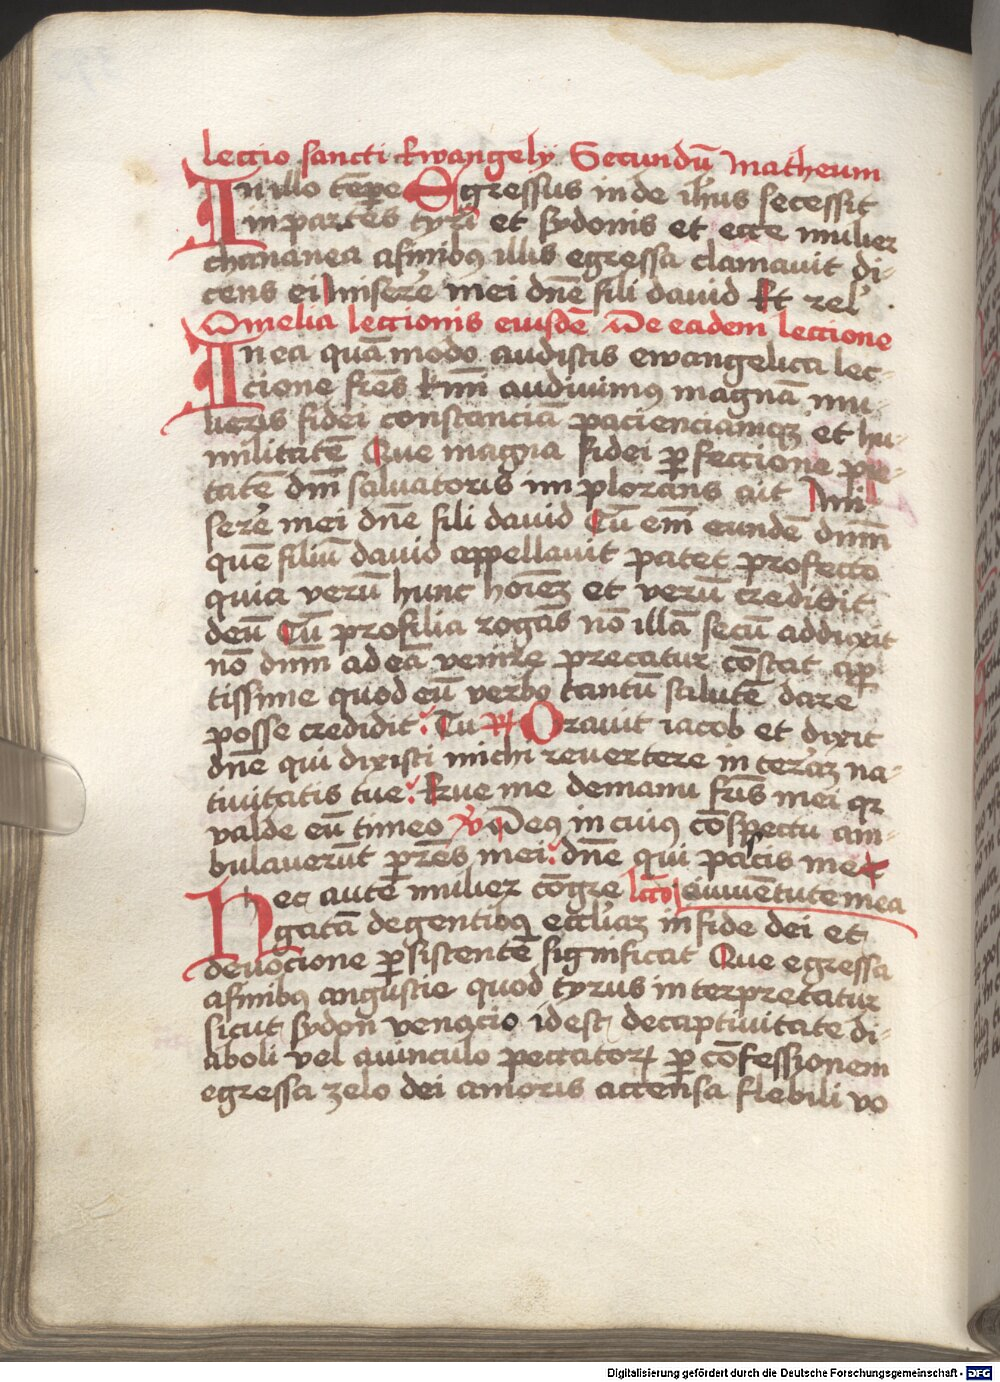 Leccio sancti Ewangely Secundū Matheum
In illo tēpore Egressus inde ih̄us secessit
in partes tyri et sydonis et ecce mulier
chananea afinibꝯ illis egressa clamauit di-
cens ei Miserē mei dn̄e fili dauid Et rel'
Omelia leccionis eiusdē De eadem leccione
In ea quā modo audistis ewangelica lec-
cione frēs km̄i audiuimꝯ magnā mu-
lieris fidei constanciā pacienciamqꝫ et hu-
militatē Que magna fidei ꝑfeccione pie-
tatē dn̄i saluatoris implorans ait Mi-
serē mei dn̄e fili dauid Cū em̄ eundē dn̄m
quē filiū dauid appellauit patet profecto
quia verū hunc hoīeꝫ et verū credidit
deū Cū pro filia rogās nō illā secū adduxit
nō dn̄m ad eā venire precatur cōstat aꝑ
tissime quod eū verbo tantū salutē dare
posse credidit Tu R Orauit iacob et dixit
dn̄e qui dixisti michi reuertere in terāꝫ na-
tiuitatis tue Erue me demanu frīs mei qr
valde eū timeo V Deꝯ in cuiꝯ cōspectu am-
bulauerūt pr̄es mei dn̄e qui pacis me
Hec autē mulier cōgre lcō eiuuētute mea
gatā degentibꝯ eccl'iaꝫ in fide dei et
deuocione ꝑsistentē significat Que egressa
afinibꝯ angustie quod tyrus interpretatur
sicut sydon venacio idest decaptiuitate di-
aboli vel auinculo peccatoꝝ ꝑ cōfessionem
egressa zelo dei amoris accensa flebili vo
Digitalisierung gefördert durch die Deutsche Forschungsgemeinschaft - DFG